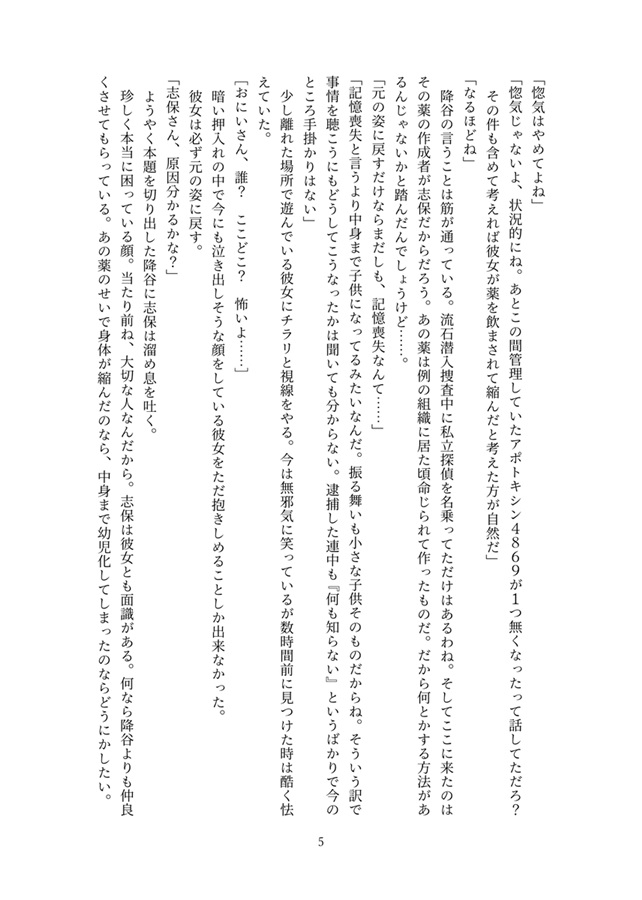 「惚気はやめてよね」
「惚気じゃないよ、状況的にね。あとこの間管理していたアポトキシン4869が1つ無くなったって話してただろ？
その件も含めて考えれば彼女が薬を飲まされて縮んだと考えた方が自然だ」
「なるほどね」
降谷の言うことは筋が通っている。流石潜入捜査中に私立探偵を名乗ってただけはあるわね。そしてここに来たのは
その薬の作成者が志保だからだろう。あの薬は例の組織に居た頃命じられて作ったものだ。だから何とかする方法があ
るんじゃないかと踏んだんでしょうけど……。
「元の姿に戻すだけならまだしも、記憶喪失なんて……」
「記憶喪失と言うより中身まで子供になってるみたいなんだ。振る舞いも小さな子供そのものだからね。そういう訳で
事情を聴こうにもどうしてこうなったかは聞いても分からない。逮捕した連中も『何も知らない』というばかりで今の
ところ手掛かりはない」
少し離れた場所で遊んでいる彼女にチラリと視線をやる。今は無邪気に笑っているが数時間前に見つけた時は酷く怯
えていた。
［おにいさん、誰？　ここどこ？　怖いよ……］
暗い押入れの中で今にも泣き出しそうな顔をしている彼女をただ抱きしめることしか出来なかった。
彼女は必ず元の姿に戻す。
「志保さん、原因分かるかな？」
ようやく本題を切り出した降谷に志保は溜め息を吐く。
珍しく本当に困っている顔。当たり前ね、大切な人なんだから。志保は彼女とも面識がある。何なら降谷よりも仲良
くさせてもらっている。あの薬のせいで身体が縮んだのなら、中身まで幼児化してしまったのならどうにかしたい。
5